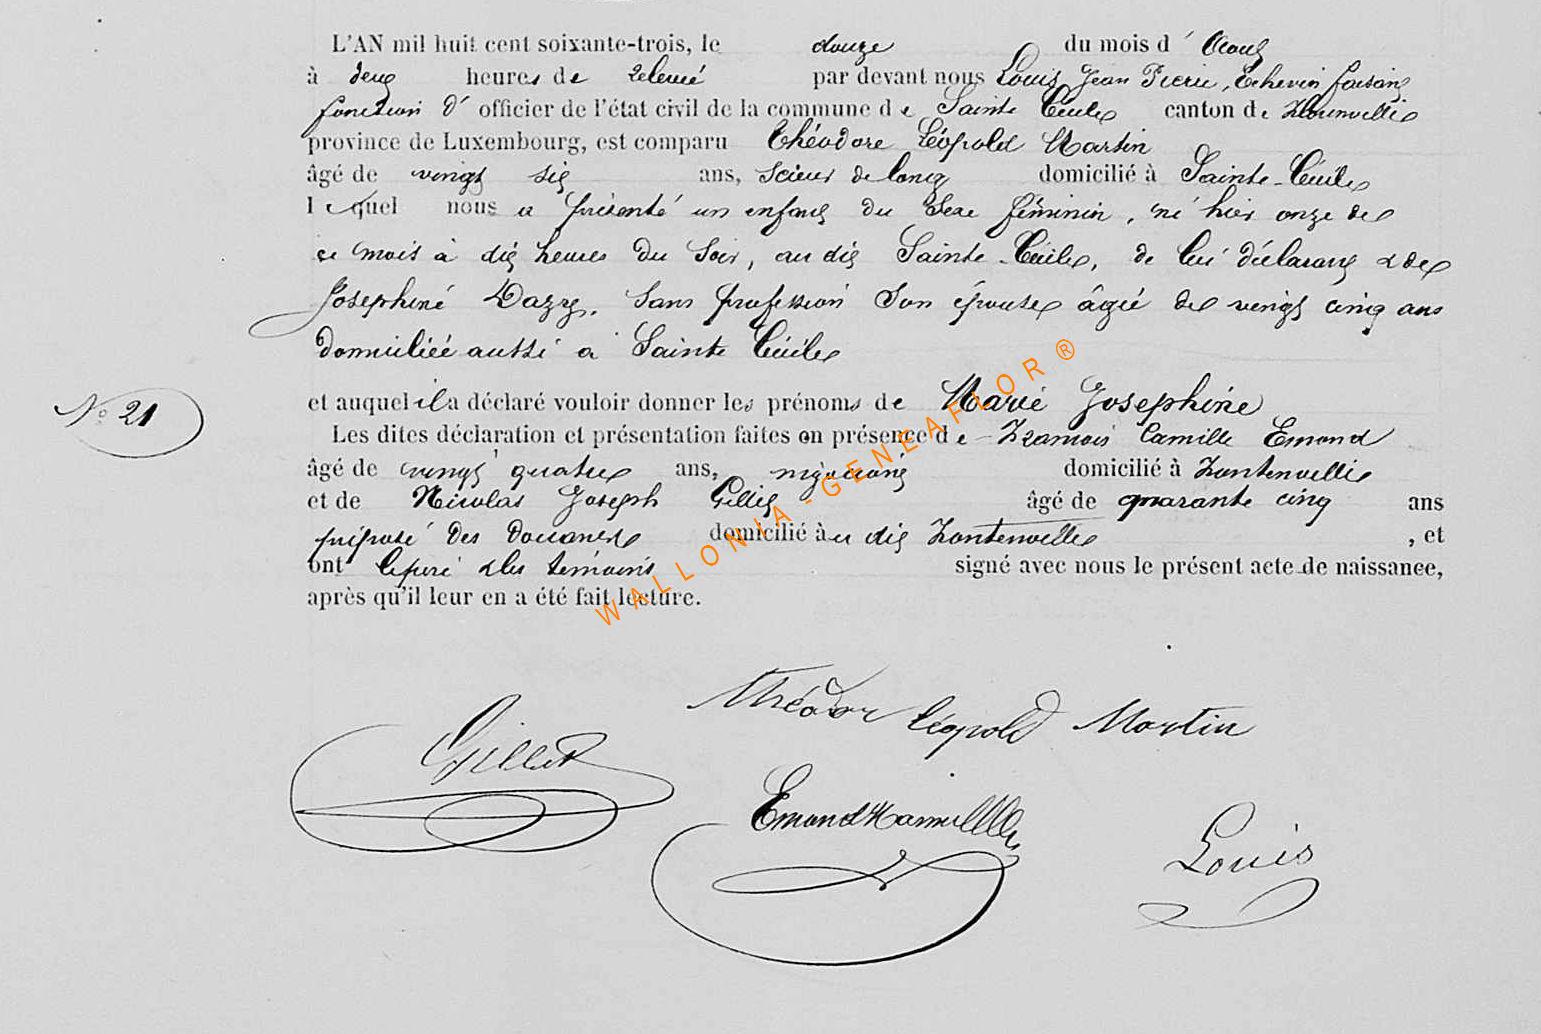 L'AN mil huit cent soixante-trois, le douze du mois d'Aout
à deux heures de relevé par devant nous Louis Jean Pierre, Echevin faisant
fonction d' officier de l'état civil de la commune de Sainte Cécile canton de Florenville
province de Luxembourg, est comparu Théodore Léopold Martin
âgé de vingt six ans, scieur de long domicilié à Sainte-Cécile
lequel nous a présenté un enfant du sexe féminin, né hier onze de
ce mois à dix heures du soir, au dit Sainte-Cécile, de lui déclarant & de
Josephine Dazy, sans profession son épouse âgée de vingt cinq ans
domiciliée aussi a Sainte Cécile
N° 21
et auquel il a déclaré vouloir donner les prénoms de Marie Josephine
Les dites déclaration et présentation faites en présence de François Camille Emond
âgé de vingt quatre ans, négociant domicilié à Fontenoille
et de Nicolas Joseph Gillet âgé de quarante cinq ans
préposé des douanes domicilié au dit Fontenoille , et
ont le père & les témoins signé avec nous le présent acte de naissance,
après qu'il leur en a été fait lecture.
WALLONIA - GENEAFLOR ®
Théodor Léopold Martin
Gillet
Emond Kamille
Louis